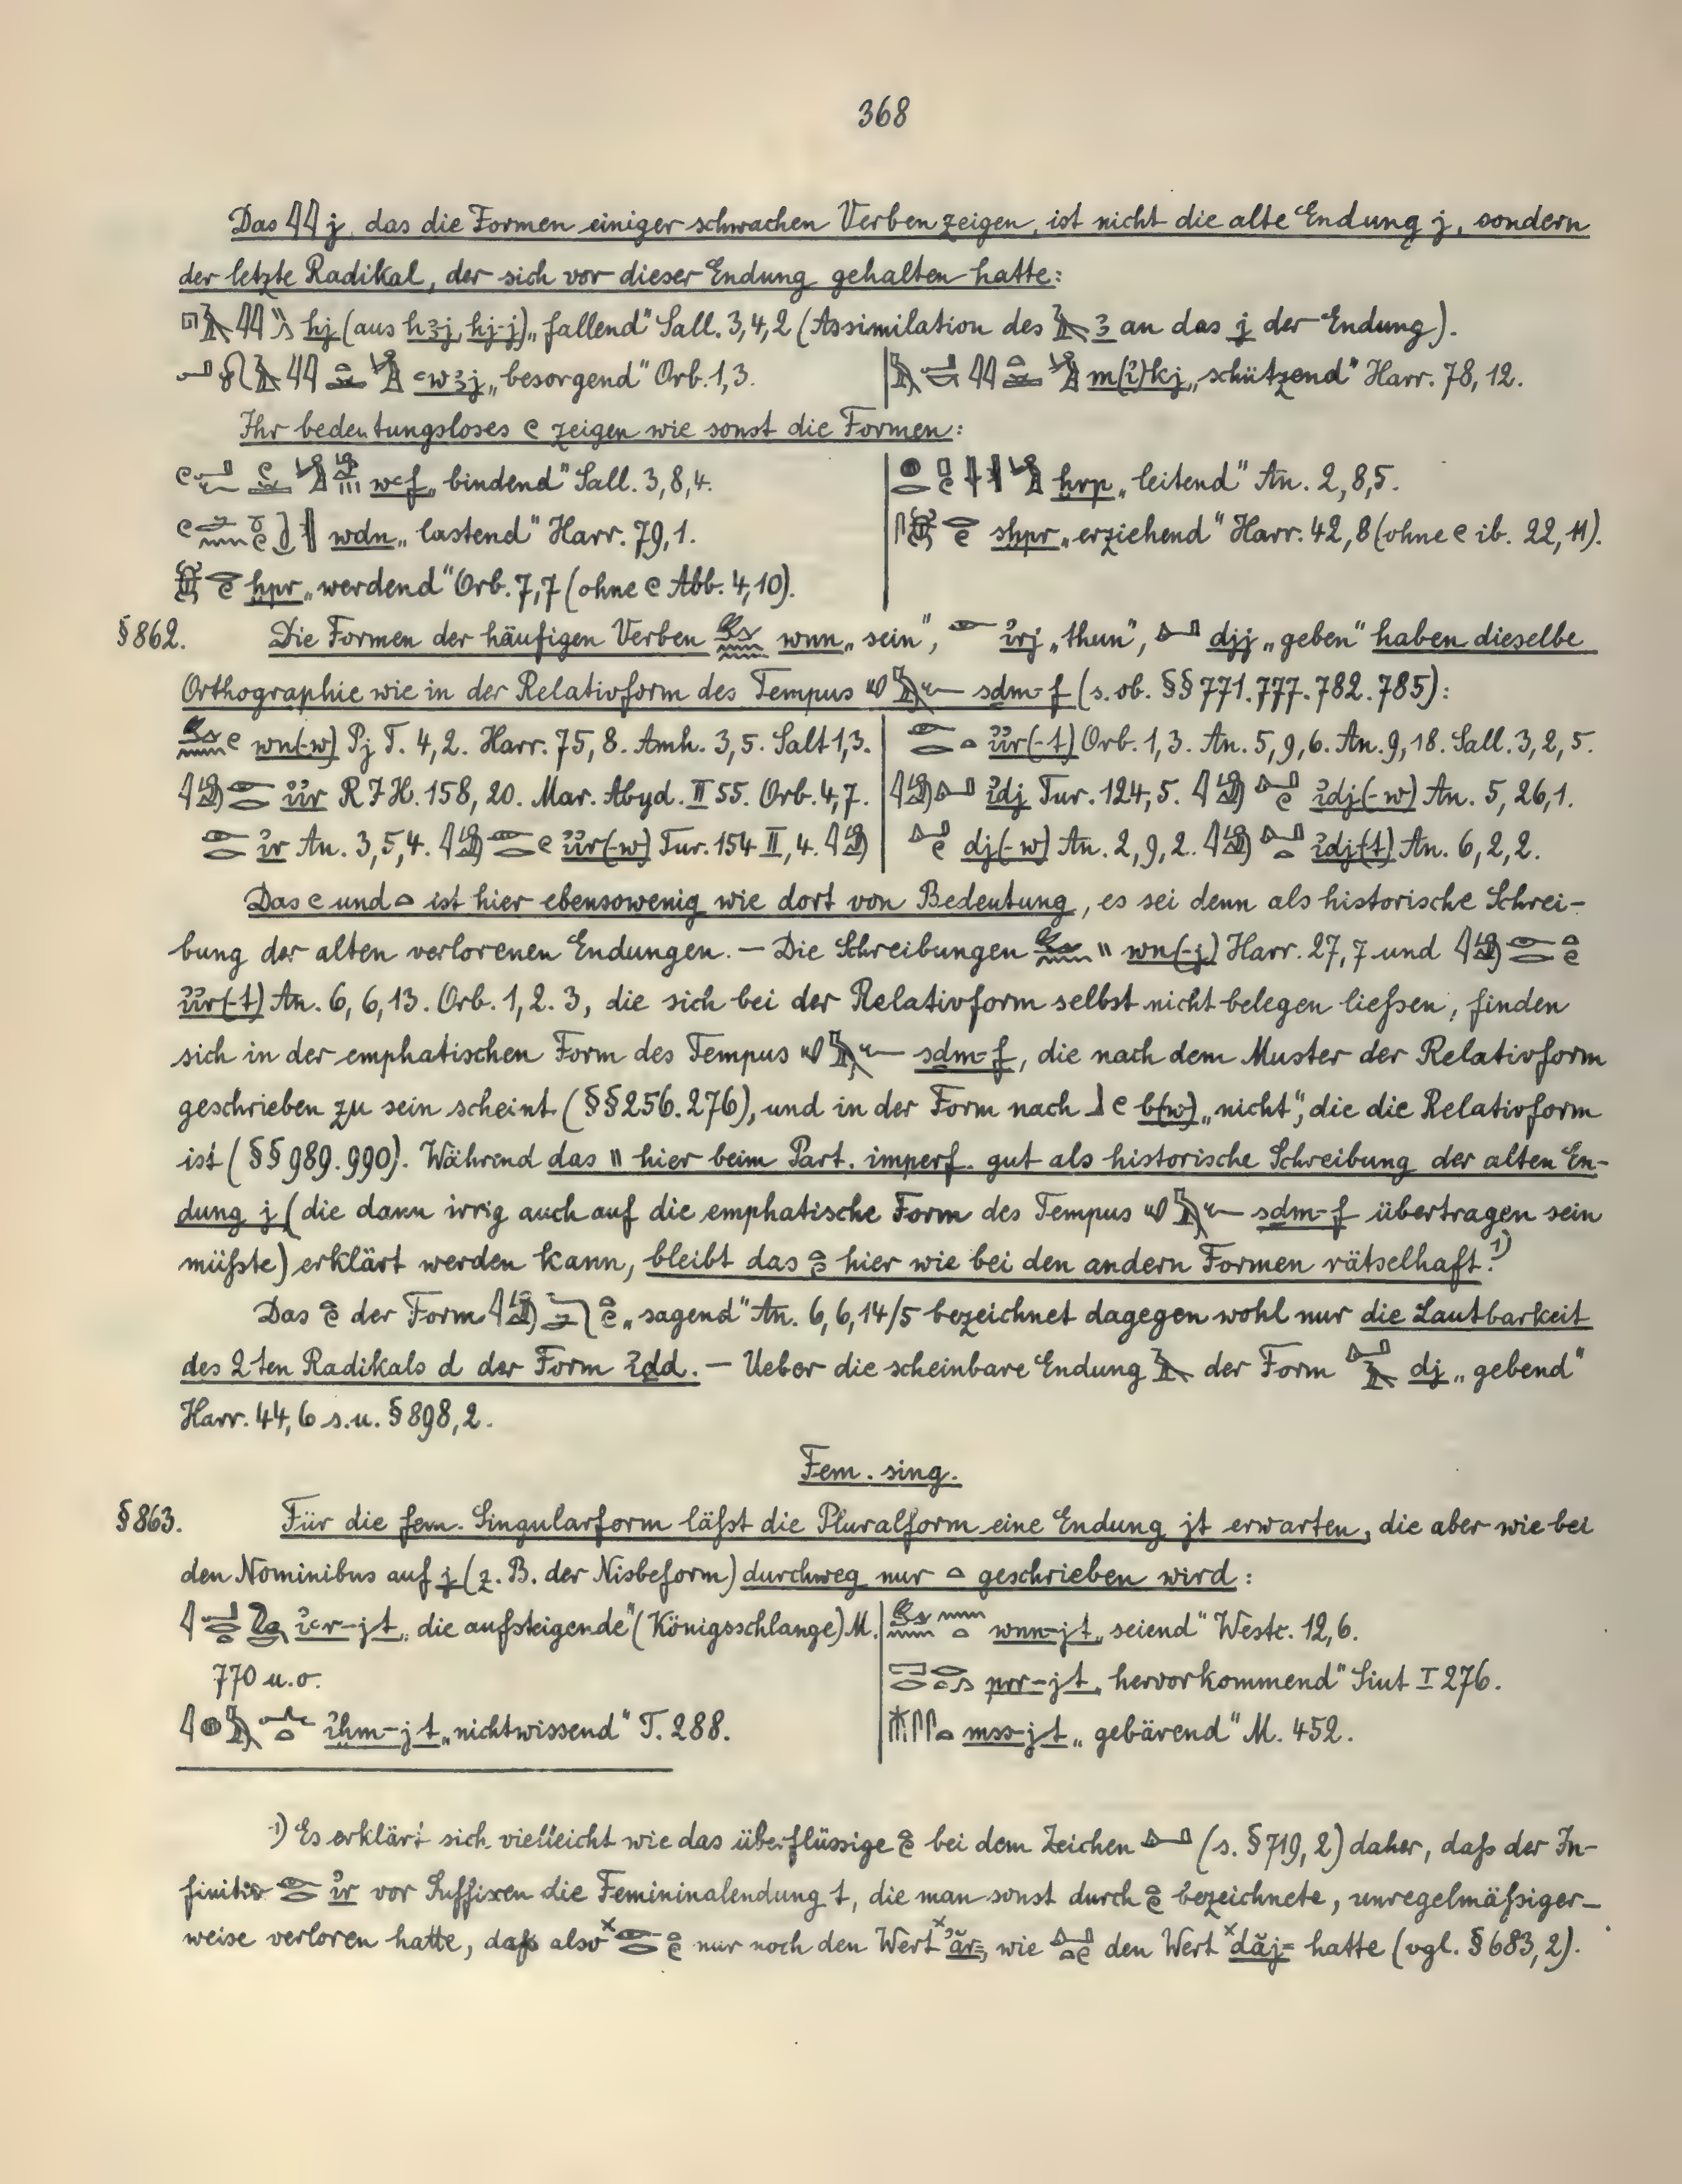 368
Das 𓇌 j, das die Formen einiger schwachen Verben zeigen, ist nicht die alte Endung j, sondern
der letzte Radikal, der sich vor dieser Endung gehalten hatte:
𓉔𓄿𓇌𓂻 hj (aus hꜣj, hj-j) „fallend" Sall. 3,4,2 (Assimilation des 𓄿 ꜣ an das j der Endung).
ꜥwꜣj „besorgend" Orb. 1,3. | m(ỉ)kj „schützend" Harr. 78,12.
Ihr bedeutungsloses 𓏲 zeigen wie sonst die Formen:
wꜥf „bindend" Sall. 3,8,4. | ḫrp „leitend" An. 2,8,5.
wdn „lastend" Harr. 79,1. | sḫpr „erziehend" Harr. 42,8 (ohne 𓏲 ib. 22,11).
ḫpr „werdend" Orb. 7,7 (ohne 𓏲 Abb. 4,10).
§ 862. Die Formen der häufigen Verben wnn „sein", 𓁹 ỉrj „thun", djj „geben" haben dieselbe
Orthographie wie in der Relativform des Tempus sdm-f (s. ob. §§ 771. 777. 782. 785):
wn(-w) Pj T. 4,2. Harr. 75,8. Amh. 3,5. Salt 1,3. | ỉỉr(-t) Orb. 1,3. An. 5,9,6. An. 9,18. Sall. 3,2,5.
ỉỉr R I H. 158,20. Mar. Abyd. II 55. Orb. 4,7. | ỉdj Tur. 124,5. ỉdj(-w) An. 5,26,1.
ỉr An. 3,5,4. ỉỉr(-w) Tur. 154 II,4. | dj(-w) An. 2,9,2. ỉdj(t) An. 6,2,2.
Das 𓏲 und 𓏏 ist hier ebensowenig wie dort von Bedeutung, es sei denn als historische Schrei-
bung der alten verlorenen Endungen. — Die Schreibungen wn(-j) Harr. 27,7 und
ỉỉr(-t) An. 6,6,13. Orb. 1,2. 3, die sich bei der Relativform selbst nicht belegen ließen, finden
sich in der emphatischen Form des Tempus sdm-f, die nach dem Muster der Relativform
geschrieben zu sein scheint (§§ 256. 276), und in der Form nach 𓃀𓏲 b(w) „nicht", die die Relativform
ist (§§ 989. 990). Während das 𓏭 hier beim Part. imperf. gut als historische Schreibung der alten En-
dung j (die dann irrig auch auf die emphatische Form des Tempus sdm-f übertragen sein
müßte) erklärt werden kann, bleibt das 𓏏𓏲 hier wie bei den andern Formen rätselhaft.¹)
Das 𓏏𓏲 der Form „sagend" An. 6,6,14/5 bezeichnet dagegen wohl nur die Lautbarkeit
des 2ten Radikals d der Form ỉḏd. — Ueber die scheinbare Endung 𓄿 der Form dj „gebend"
Harr. 44,6 s. u. § 898,2.
Fem. sing.
§ 863. Für die fem. Singularform läßt die Pluralform eine Endung jt erwarten, die aber wie bei
den Nominibus auf j (z. B. der Nisbeform) durchweg nur 𓏏 geschrieben wird:
ỉꜥr-jt „die aufsteigende" (Königsschlange) M. | wnn-jt „seiend" Westc. 12,6.
770 u. o. | prr-jt „hervorkommend" Siut I 276.
ỉḫm-jt „nichtwissend" T. 288. | mss-jt „gebärend" M. 452.
¹) Es erklärt sich vielleicht wie das überflüssige 𓏏𓏲 bei dem Zeichen (s. § 719,2) daher, daß der In-
finitiv ỉr vor Suffixen die Femininalendung t, die man sonst durch 𓏏𓏲 bezeichnete, unregelmäßiger-
weise verloren hatte, daß also nur noch den Wert ˣʾăr=, wie den Wert ˣdăj= hatte (vgl. § 683,2).